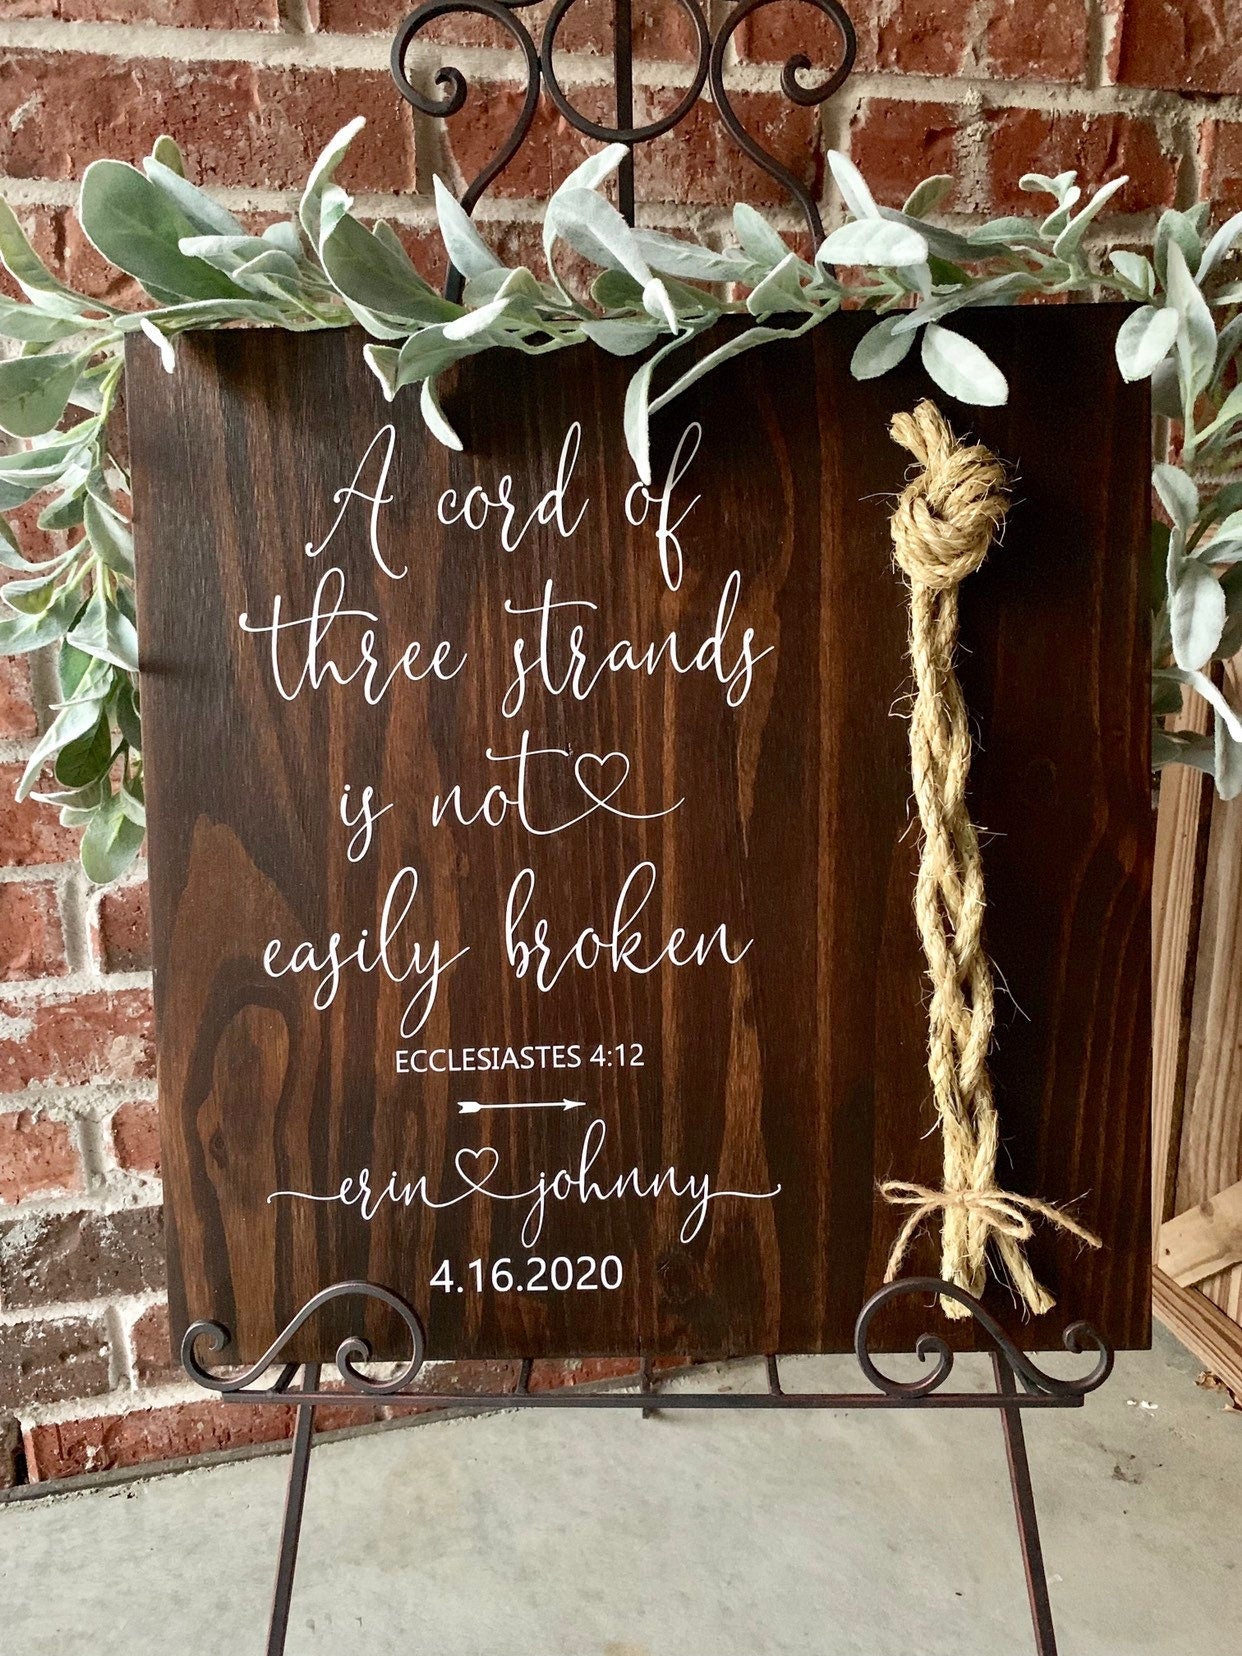 A cord of
three strands
is not
easily broken
ECCLESIASTES 4:12
erin johnny
4.16.2020